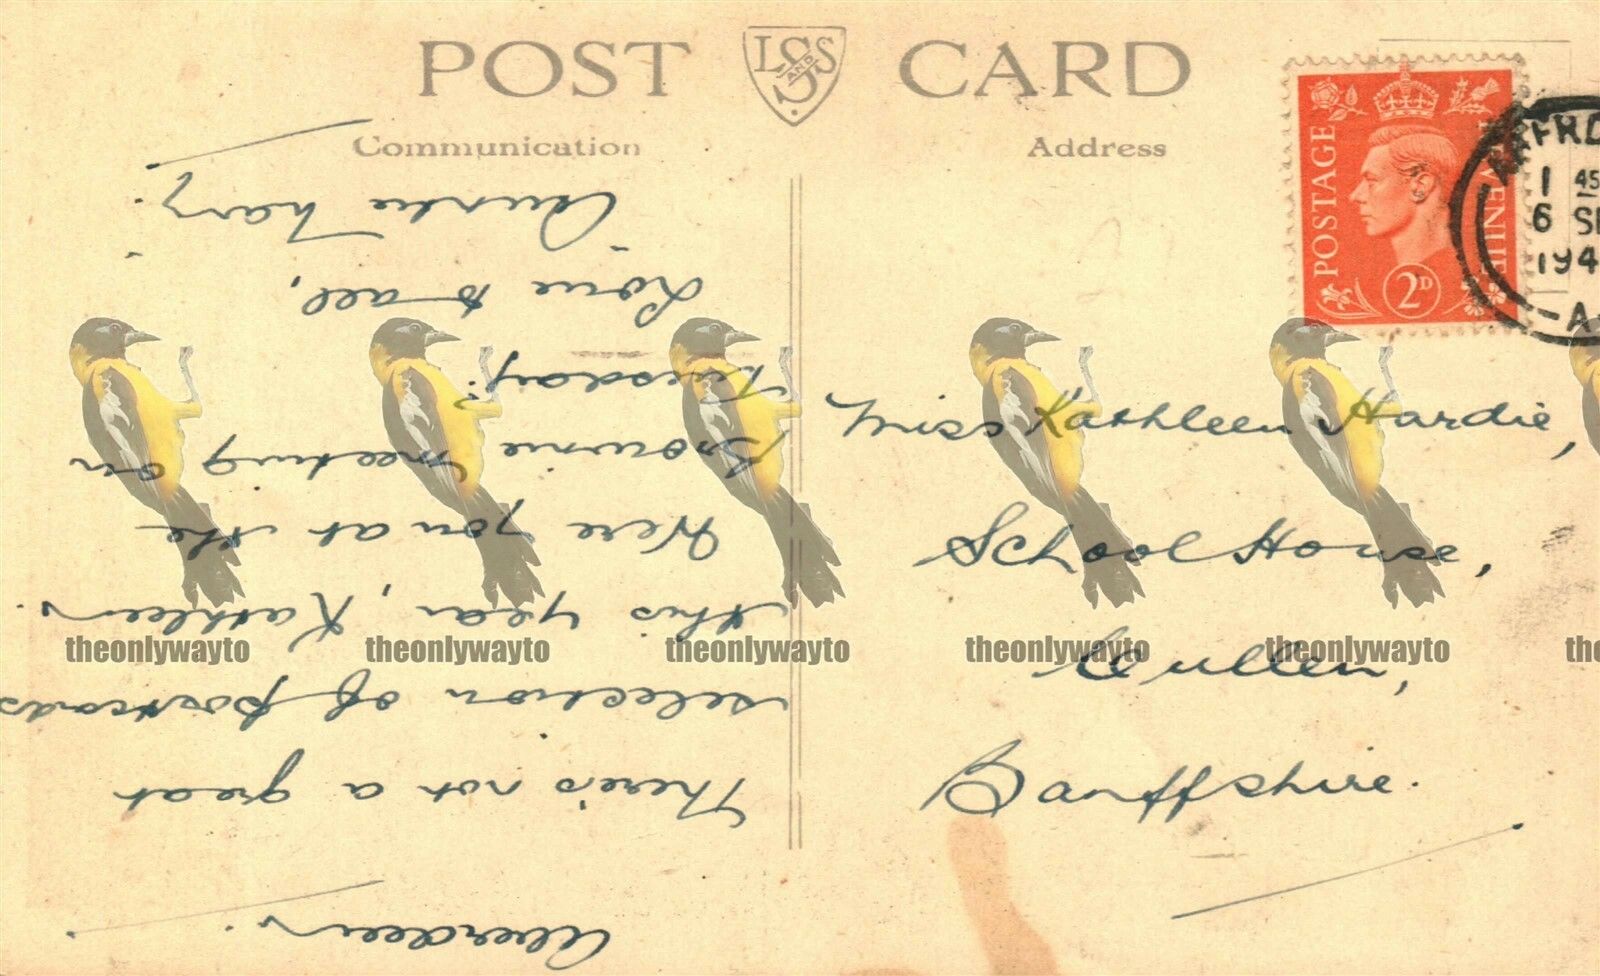 POST CARD
L S AND S S
Communication
Address
POSTAGE
REVENUE
2D
1 45
6 SE
194
Miss Kathleen Hardie,
School House,
Cullen,
Banffshire.
Aberdeen.
There's not a great
selection of postcards
this year, Kathleen.
Were you at the
Brownie meeting on
Tuesday?
Love to all,
Auntie Mary.
theonlywayto theonlywayto theonlywayto theonlywayto theonlywayto